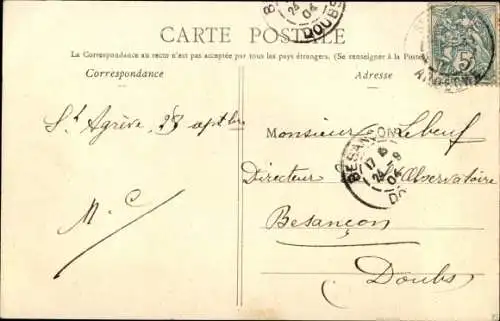 CARTE POSTALE
La Correspondance au recto n'est pas acceptée par tous les pays étrangers. (Se renseigner à la Poste)
Correspondance
Adresse
St Agrève, 23 septbre
M. C.
Monsieur Lebeuf
Directeur d'Observatoire
Besançon
Doubs
24
04
DOUBS
BESANÇON
17
24 - 9
04
5